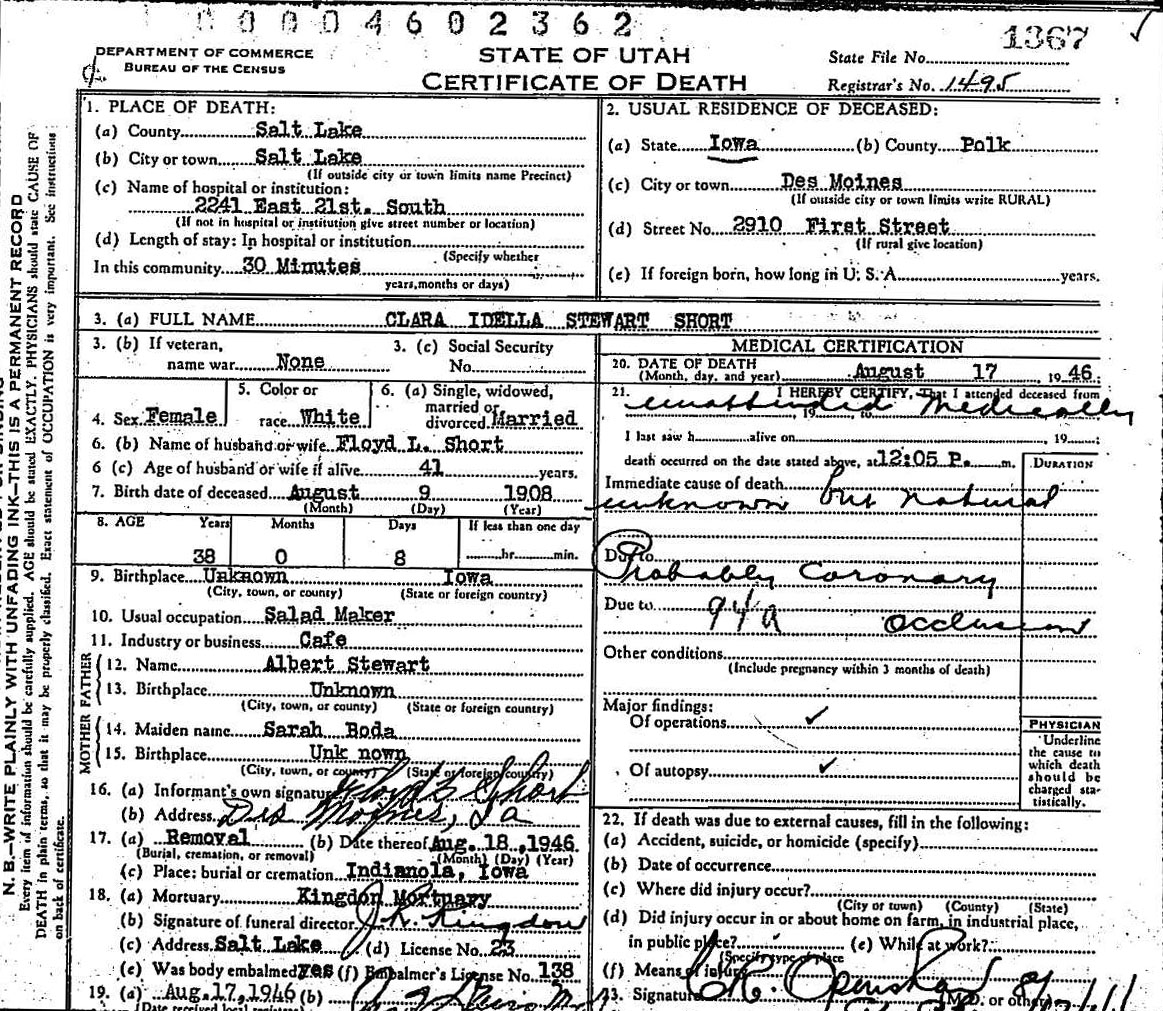 00004602362
1367
DEPARTMENT OF COMMERCE
BUREAU OF THE CENSUS
STATE OF UTAH
CERTIFICATE OF DEATH
State File No.
Registrar's No. 1495
1. PLACE OF DEATH:
(a) County Salt Lake
(b) City or town Salt Lake
(If outside city or town limits name Precinct)
(c) Name of hospital or institution:
2241 East 21st. South
(If not in hospital or institution give street number or location)
(d) Length of stay: In hospital or institution
(Specify whether
In this community 30 Minutes
years, months or days)
2. USUAL RESIDENCE OF DECEASED:
(a) State Iowa (b) County Polk
(c) City or town Des Moines
(If outside city or town limits write RURAL)
(d) Street No. 2910 First Street
(If rural give location)
(e) If foreign born, how long in U. S. A. years.
3. (a) FULL NAME CLARA IDELLA STEWART SHORT
3. (b) If veteran,
name war None
3. (c) Social Security
No.
4. Sex Female
5. Color or
race White
6. (a) Single, widowed,
married or
divorced Married
6. (b) Name of husband or wife Floyd L. Short
6 (c) Age of husband or wife if alive 41 years.
7. Birth date of deceased August 9 1908
(Month) (Day) (Year)
8. AGE Years Months Days If less than one day
38 0 8 hr. min.
9. Birthplace Unknown Iowa
(City, town, or county) (State or foreign country)
10. Usual occupation Salad Maker
11. Industry or business Cafe
FATHER
12. Name Albert Stewart
13. Birthplace Unknown
(City, town, or county) (State or foreign country)
MOTHER
14. Maiden name Sarah Boda
15. Birthplace Unk nown
(City, town, or county) (State or foreign country)
16. (a) Informant's own signature Floyd L Short
(b) Address Des Moines, Ia
17. (a) Removal (b) Date thereof Aug. 18, 1946
(Burial, cremation, or removal) (Month) (Day) (Year)
(c) Place: burial or cremation Indianola, Iowa
18. (a) Mortuary Kingdon Mortuary
(b) Signature of funeral director J. K. Kingdon
(c) Address Salt Lake (d) License No. 23
(e) Was body embalmed yes (f) Embalmer's License No. 138
19. (a) Aug. 17, 1946 (b)
(Date received local registrar)
MEDICAL CERTIFICATION
20. DATE OF DEATH
(Month, day, and year) August 17 1946
21. I HEREBY CERTIFY, That I attended deceased from
unattended medically
19
I last saw h alive on , 19 ;
death occurred on the date stated above, at 12:05 P. m.
DURATION
Immediate cause of death
unknown but natural
Due to
Probably Coronary
Due to 94a occlusion
Other conditions
(Include pregnancy within 3 months of death)
Major findings:
Of operations ✓
Of autopsy ✓
PHYSICIAN
Underline
the cause to
which death
should be
charged sta-
tistically.
22. If death was due to external causes, fill in the following:
(a) Accident, suicide, or homicide (specify)
(b) Date of occurrence
(c) Where did injury occur?
(City or town) (County) (State)
(d) Did injury occur in or about home on farm, in industrial place,
in public place? (e) While at work?
(Specify type of place
(f) Means of injury
23. Signature (M.D. or other)
N. B.—WRITE PLAINLY WITH UNFADING INK—THIS IS A PERMANENT RECORD
Every item of information should be carefully supplied. AGE should be stated EXACTLY. PHYSICIANS should state CAUSE OF
DEATH in plain terms, so that it may be properly classified. Exact statement of OCCUPATION is very important. See instructions
on back of certificate.